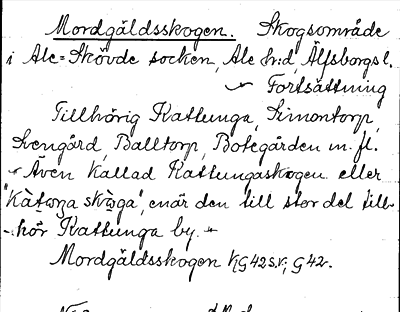 Mordgäldsskogen. Skogsområde
i Ale=Skövde socken, Ale hr:d, Älfsborgs l.
Fortsättning
Tillhörig Kattunga, Simontorp,
Svengård, Balltorp, Botegården m. fl.
Även kallad Kattungaskogen eller
enär den till stor del till-
hör Kattunga by.
Mordgäldsskogen G42 s.v., G42.